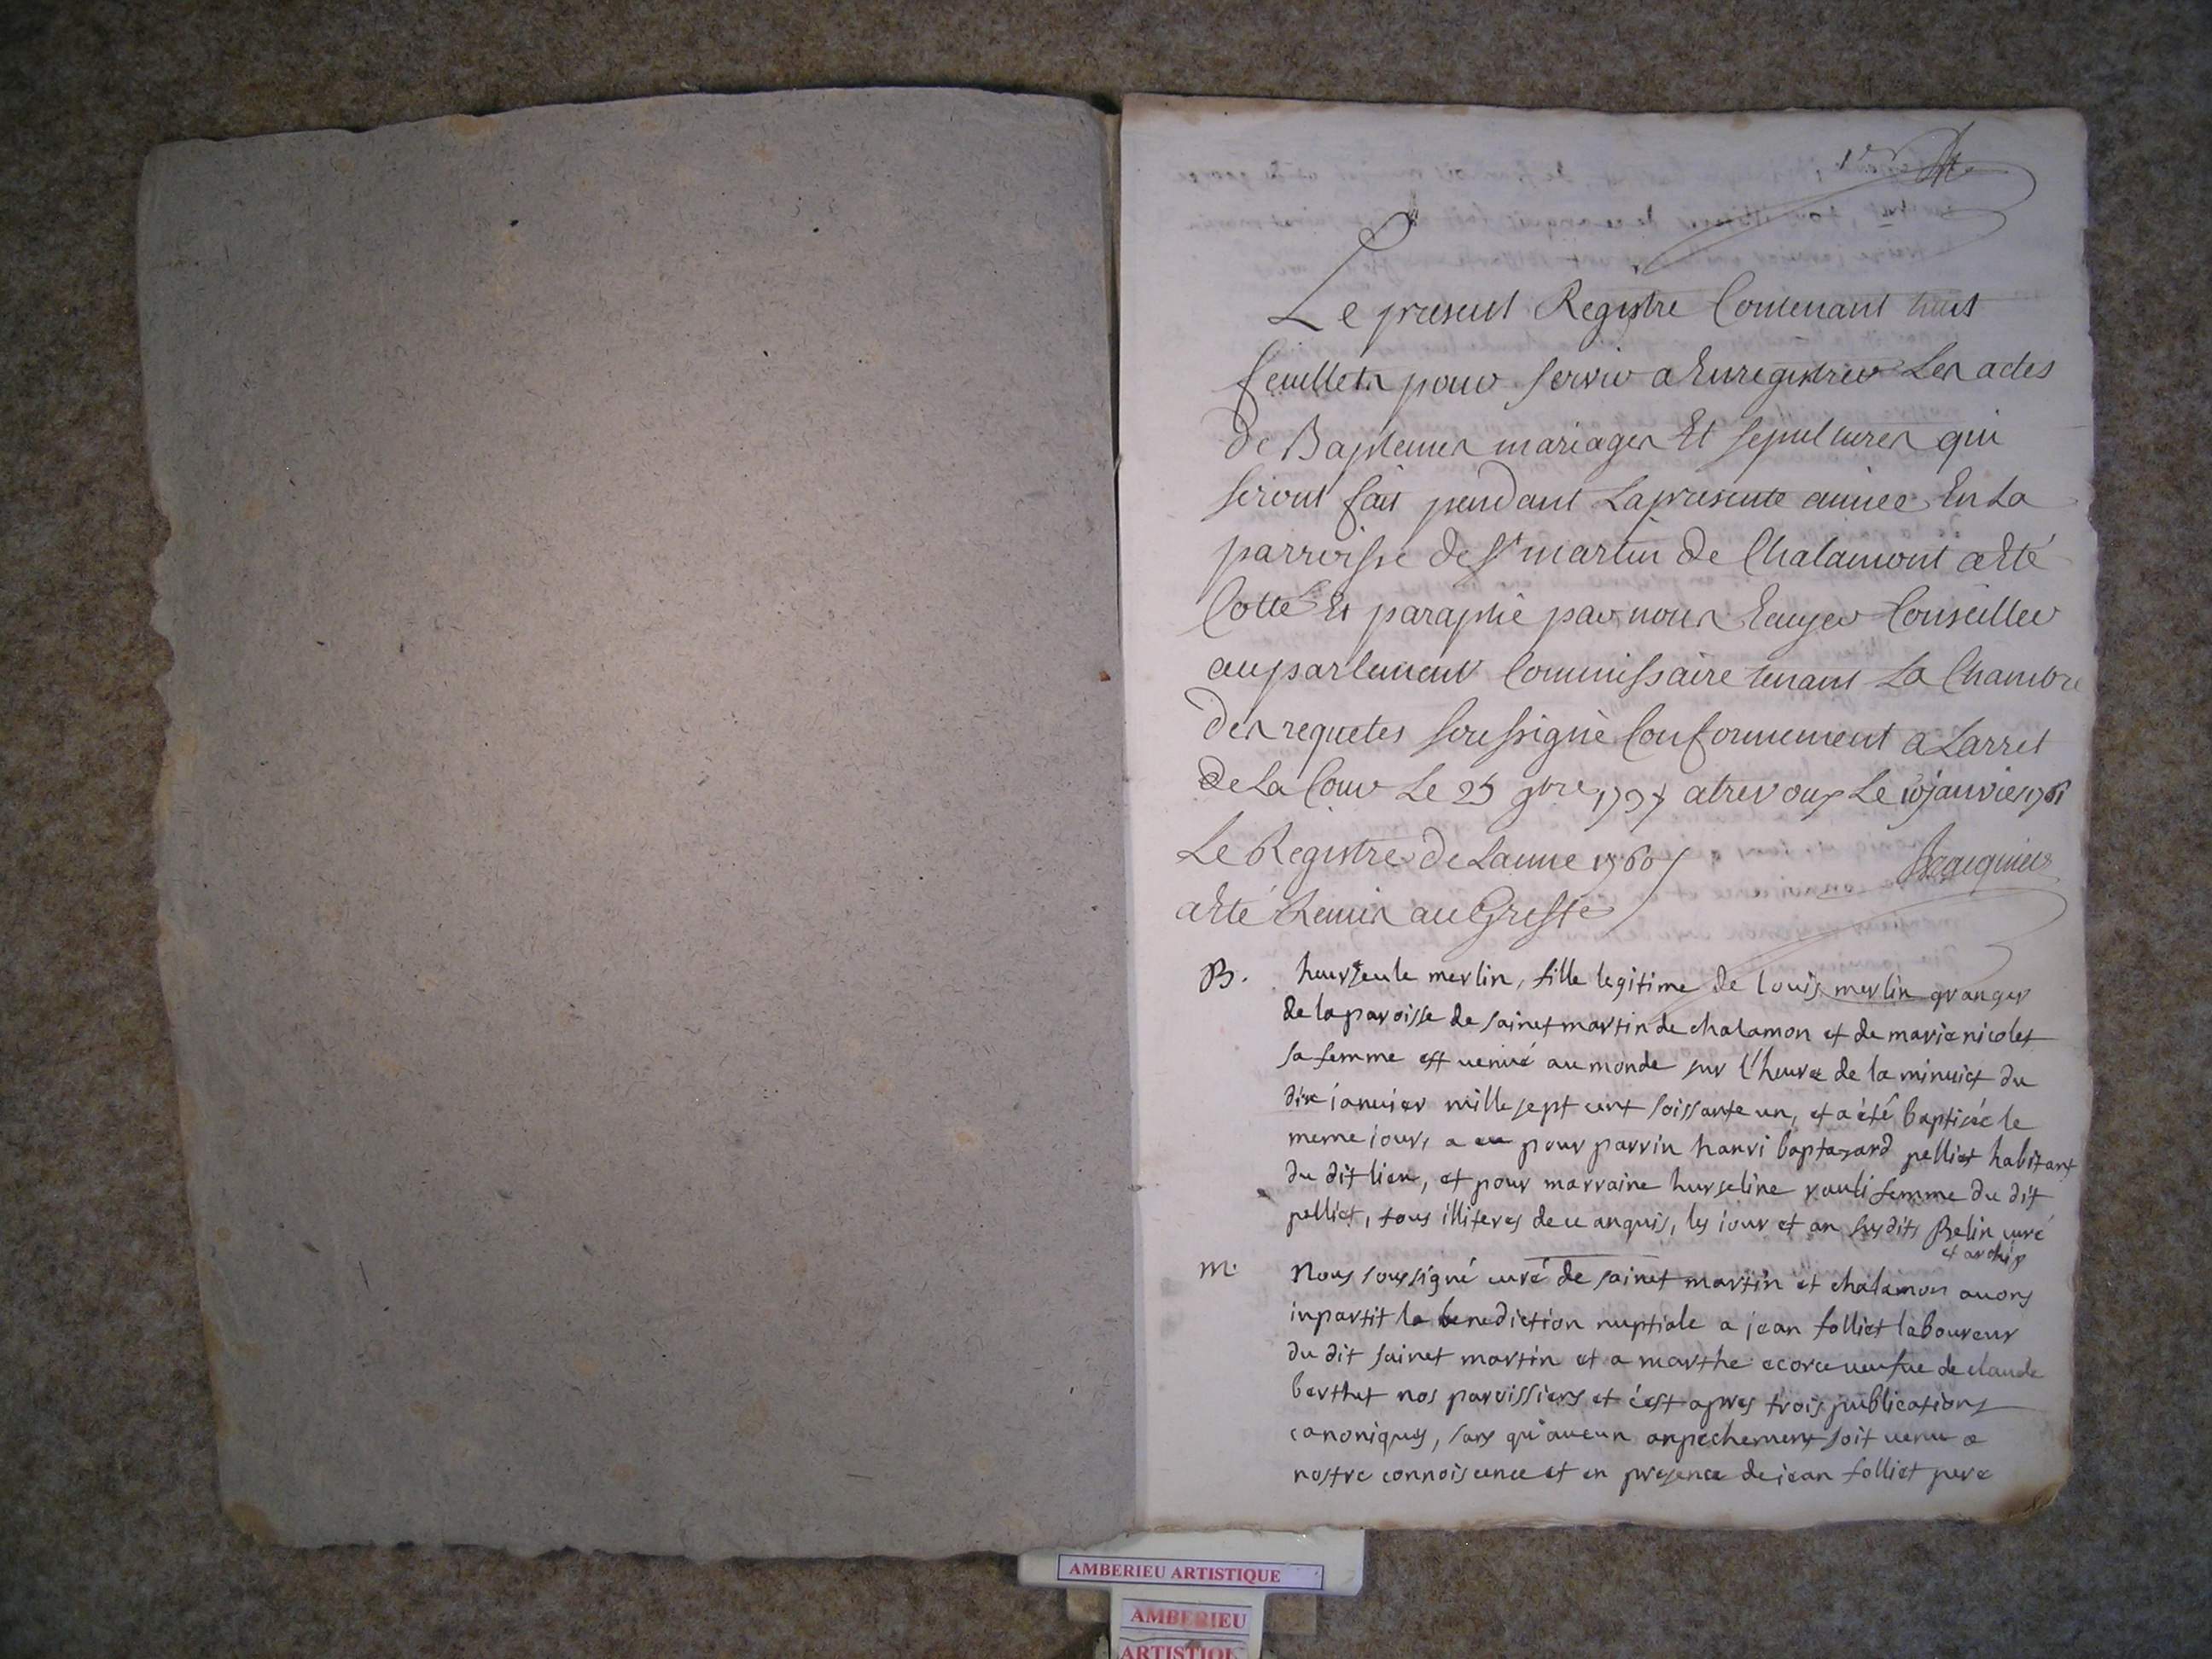 1er
Le present Registre Contenant huit
feuillets pour servir a Enregistrer Les actes
de Baptemes mariages Et sepultures qui
seront fait pendant La presente année En La
parroisse de St martin de Chalamont a Eté
Cotté Et paraphé par nous Ecuyer Conseiller
au parlement Commissaire tenant La Chambre
des requetes soussigné Conformement a Larret
de La Cour Le 25 9bre a trevoux Le janvier 1761
Le Registre de Lanne 1760
a Eté Remis au Greffe
Jacquier
B. heurseule merlin, fille legitime de louis merlin granger
de la paroisse de sainct martin de chalamon et de marie nicolet
sa femme est venuë au monde sur l'heure de la minuict du
dix ianvier mille sept cent soissante un, et a été baptisée le
meme iour, a eu pour parrin hanri baptasard pelliet habitant
du dit lieu, et pour marraine hurseline rouli femme du dit
pelliet, tous illiteres de ce anquis, les iour et an susdits Belin curé
et archip
M. Nous soussigné curé de sainct martin et chalamon avons
inpartit la benediction nuptiale a jean folliet laboureur
du dit sainct martin et a marthe ecorce veufue de claude
berthet nos paroissiens et c'est apres trois publications
canoniques, sans qu'aucun anpechement soit venu a
nostre connoiscence et en presence de jean folliet pere
AMBERIEU ARTISTIQUE
AMBERIEU